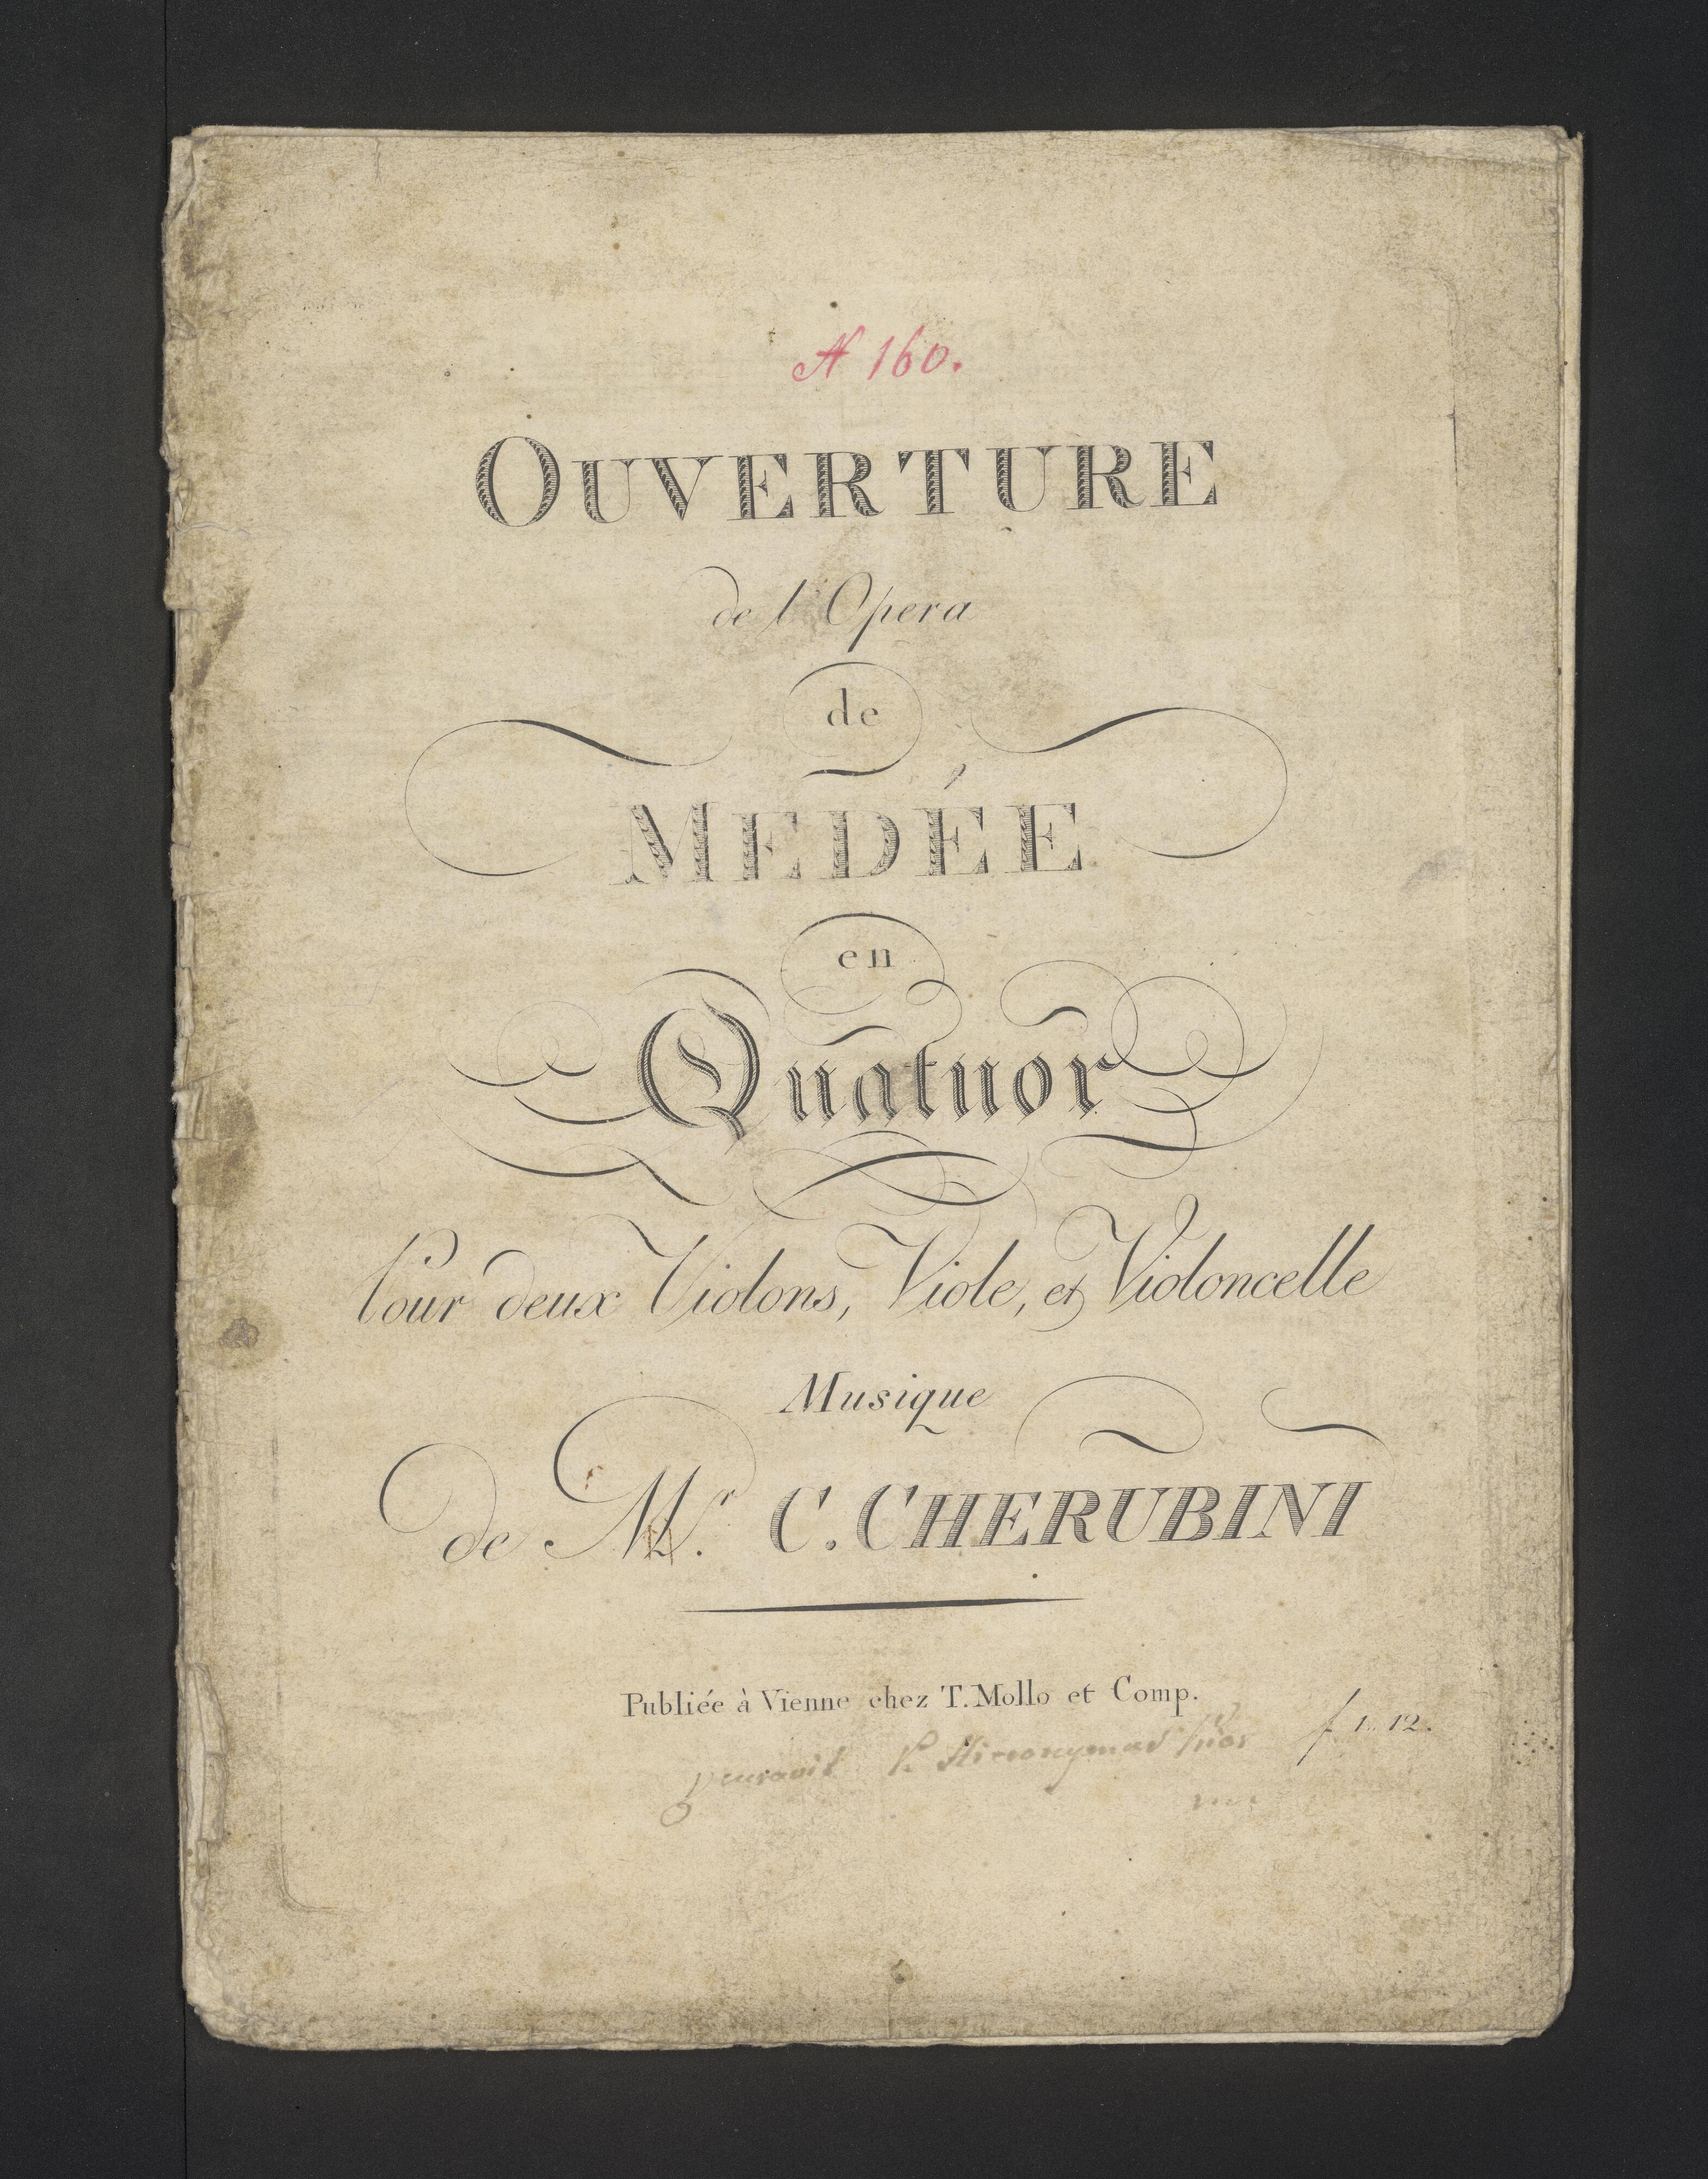 N 160.
OUVERTURE
de l'Opera
de
MEDÉE
en
Quatuor
Pour deux Violons, Viole, et Violoncelle
Musique
de Mr. C. CHERUBINI
Publiée à Vienne chez T. Mollo et Comp.
f 1.. 12.
P. Hieronymus